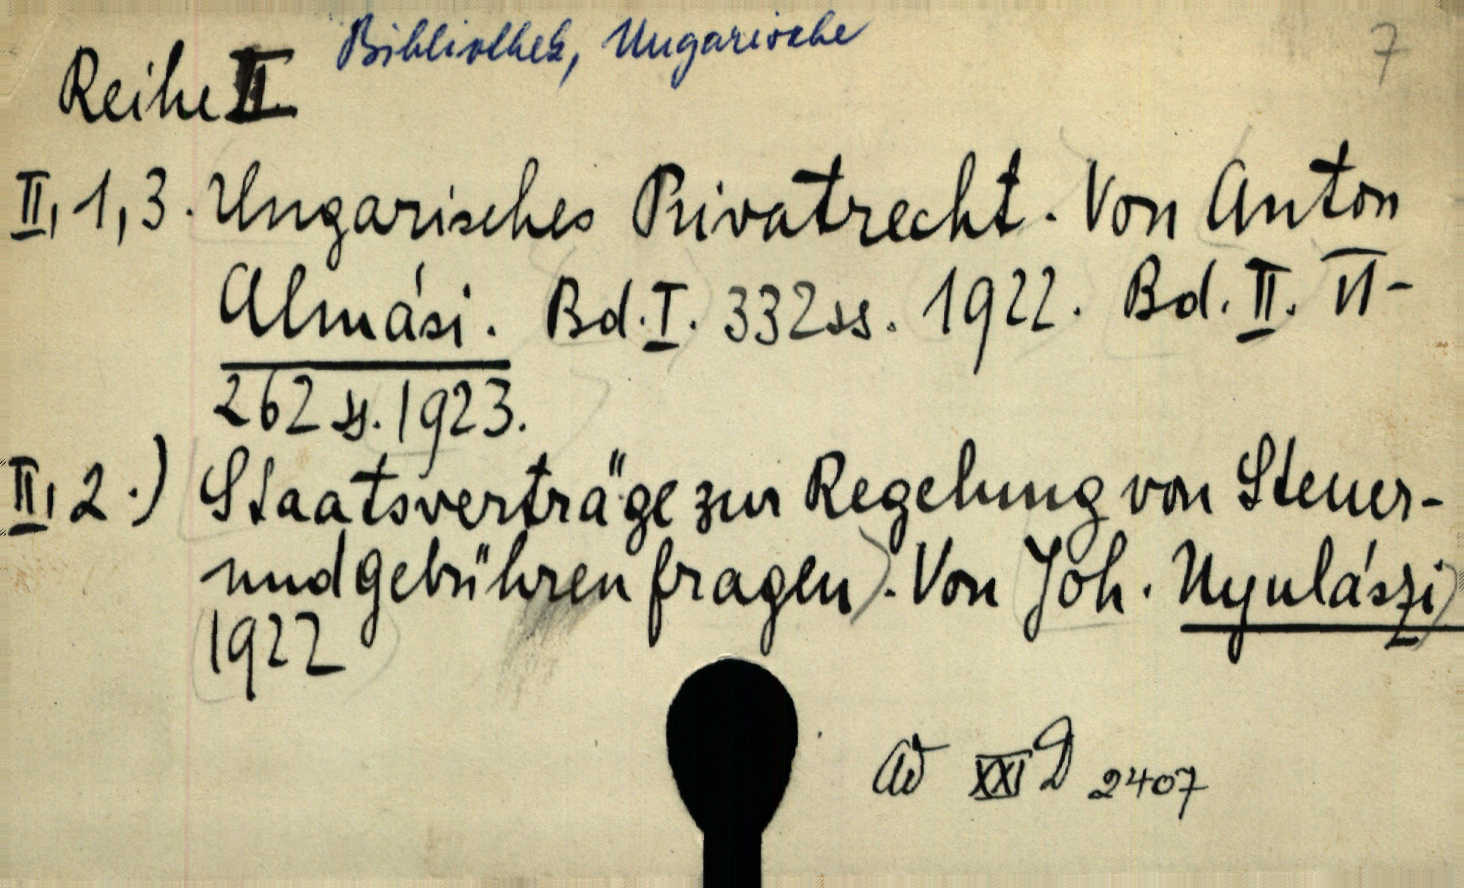 Bibliothek, Ungarische
7
Reihe II
II, 1, 3. Ungarisches Privatrecht. Von Anton
Almási. Bd. I. 332 ss. 1922. Bd. II. VI-
262 ss. 1923.
II, 2.) Staatsverträge zur Regelung von Steuer-
und gebühren fragen). Von Joh. Nyulászi
1922
Ad XXI D 2407